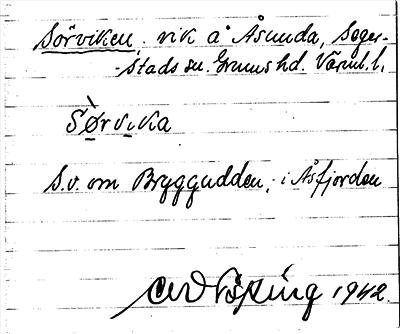 Sörviken, vik å Åsunda, Seger-
-stads sn. Grums hd. Värml. l.
Sø̀rvika
S.v. om Bryggudden, i Åsfjorden
1942